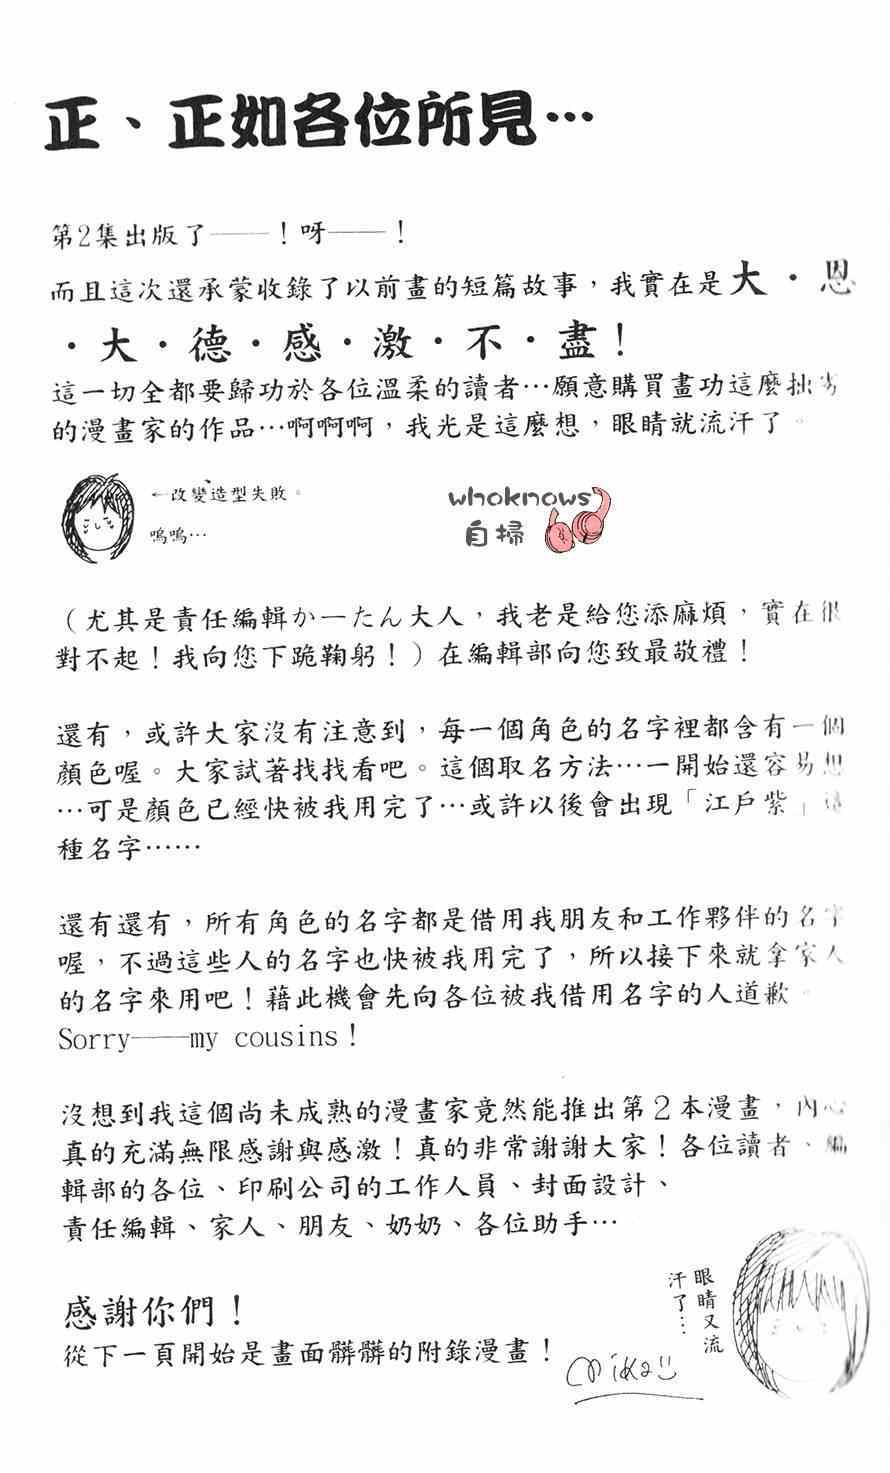 正、正如各位所見…
第2集出版了——！呀——！
而且這次還承蒙收錄了以前畫的短篇故事，我實在是大・恩
・大・德・感・激・不・盡！
這一切全都要歸功於各位溫柔的讀者…願意購買畫功這麼拙劣
的漫畫家的作品…啊啊啊，我光是這麼想，眼睛就流汗了。
←改變造型失敗。
嗚嗚…
whoknows
自掃
（尤其是責任編輯かーたん大人，我老是給您添麻煩，實在很
對不起！我向您下跪鞠躬！）在編輯部向您致最敬禮！
還有，或許大家沒有注意到，每一個角色的名字裡都含有一個
顏色喔。大家試著找找看吧。這個取名方法…一開始還容易想
…可是顏色已經快被我用完了…或許以後會出現「江戶紫」這
種名字……
還有還有，所有角色的名字都是借用我朋友和工作夥伴的名字
喔，不過這些人的名字也快被我用完了，所以接下來就拿家人
的名字來用吧！藉此機會先向各位被我借用名字的人道歉。
Sorry——my cousins！
沒想到我這個尚未成熟的漫畫家竟然能推出第2本漫畫，內心
真的充滿無限感謝與感激！真的非常謝謝大家！各位讀者、編
輯部的各位、印刷公司的工作人員、封面設計、
責任編輯、家人、朋友、奶奶、各位助手…
感謝你們！
從下一頁開始是畫面髒髒的附錄漫畫！
眼睛又流
汗了…
mika